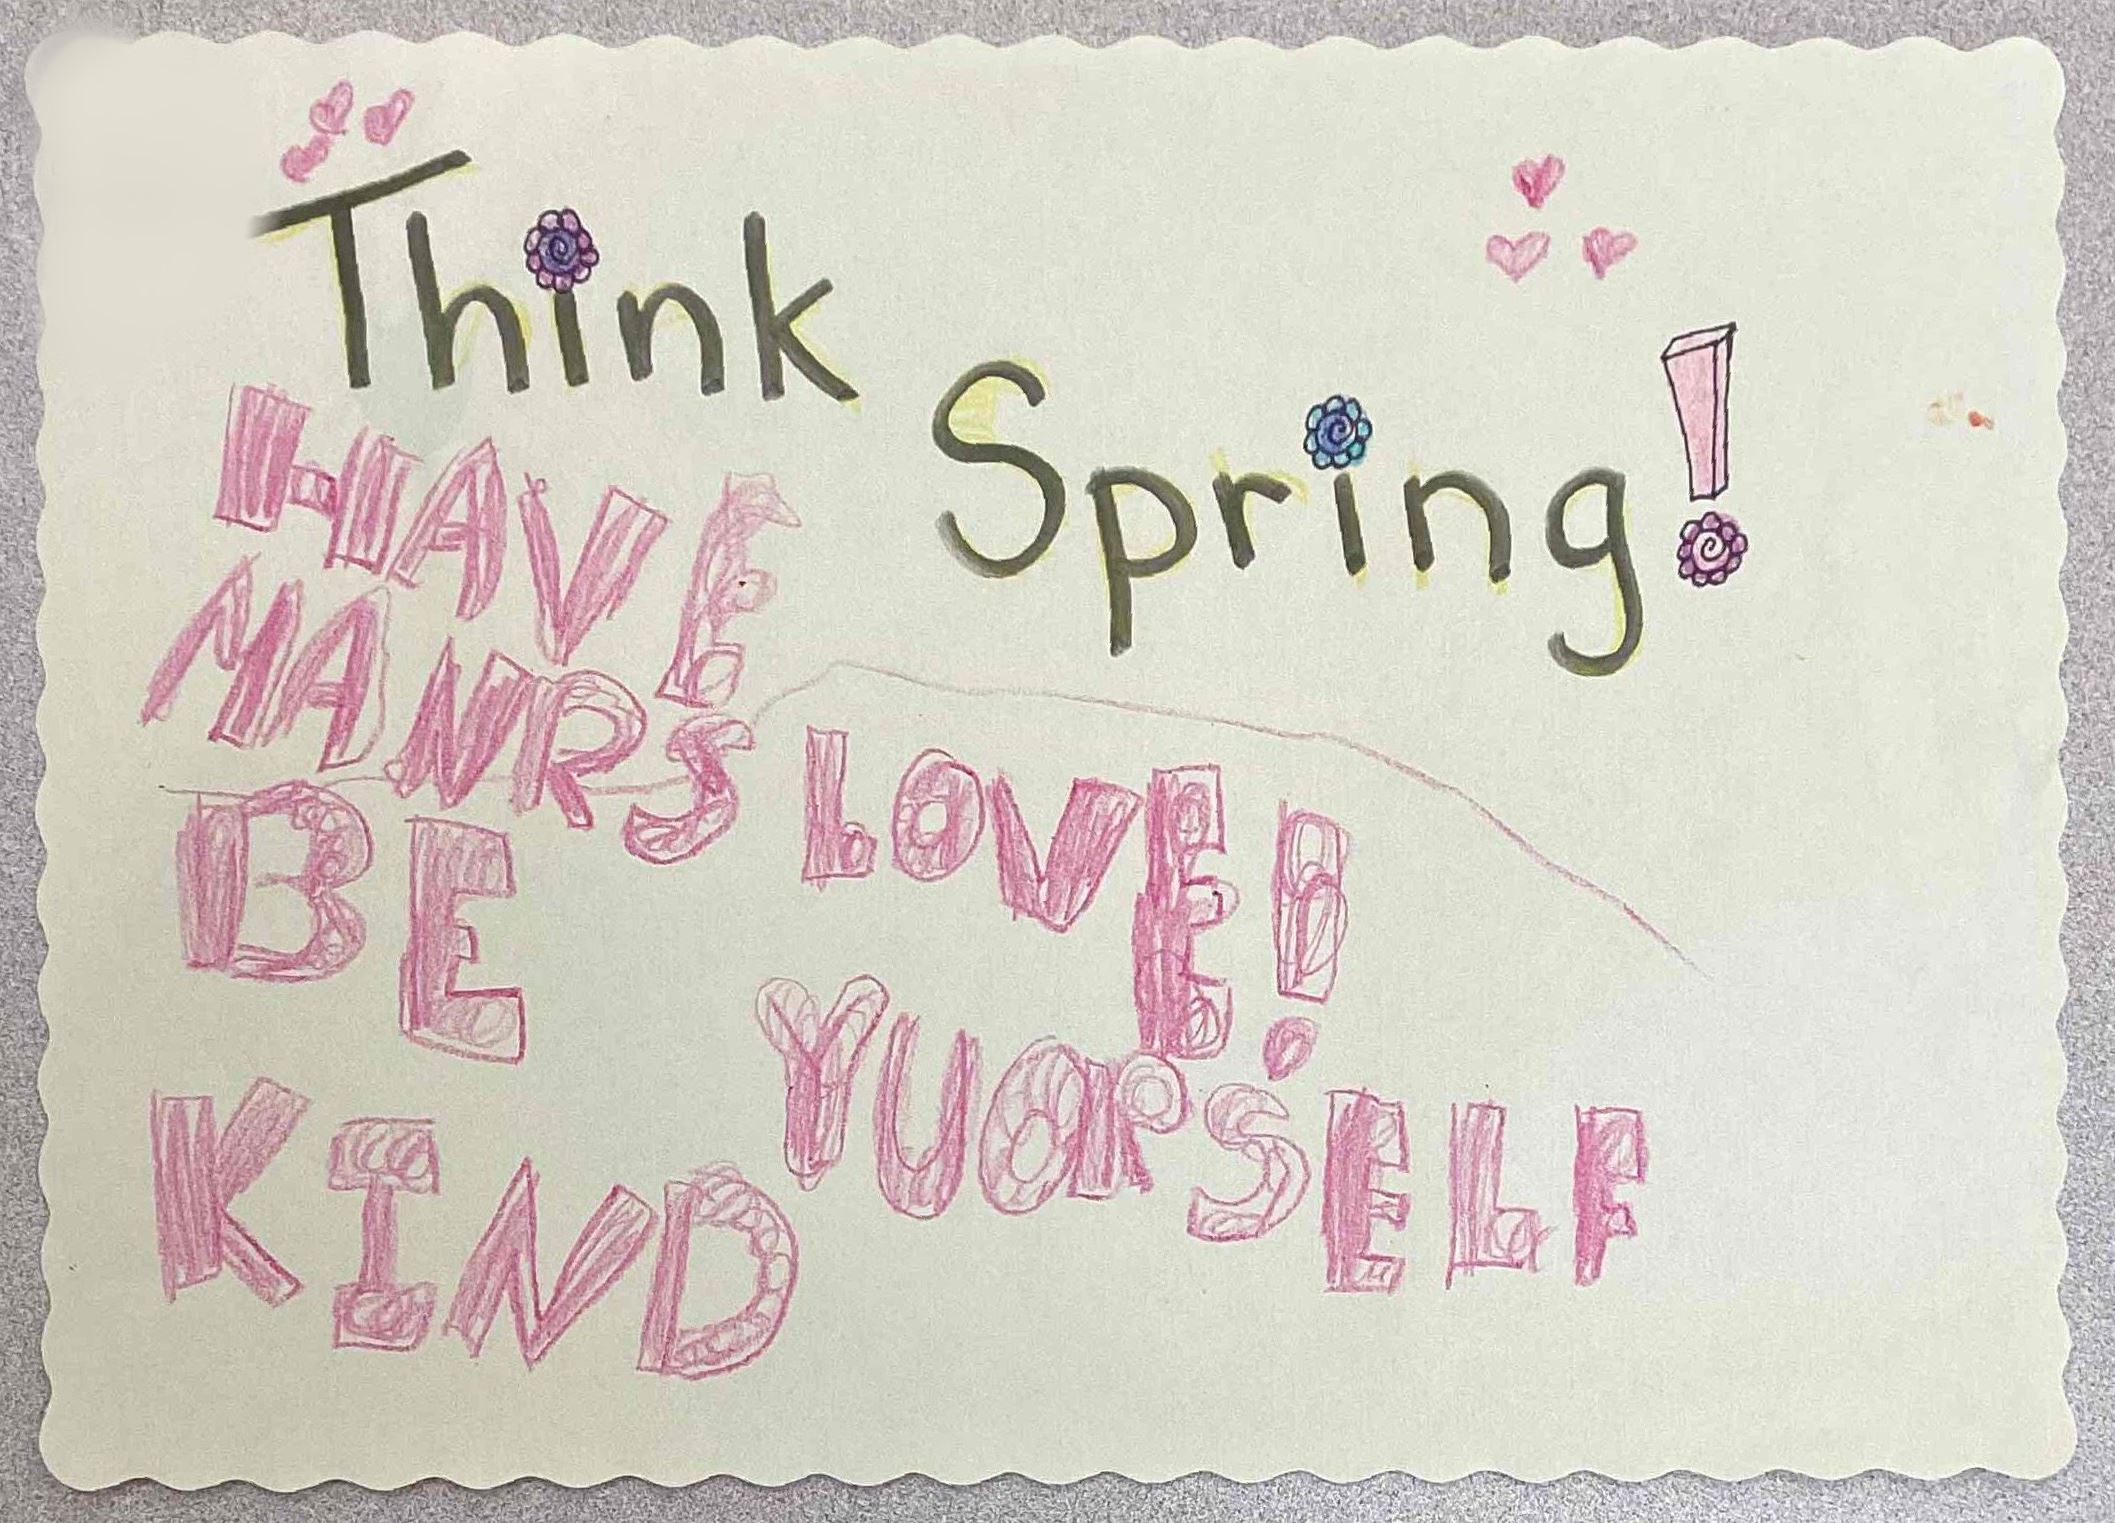 Think
Spring!
HAVE
MANRS
BE
KIND
LOVE!
YUORSELF